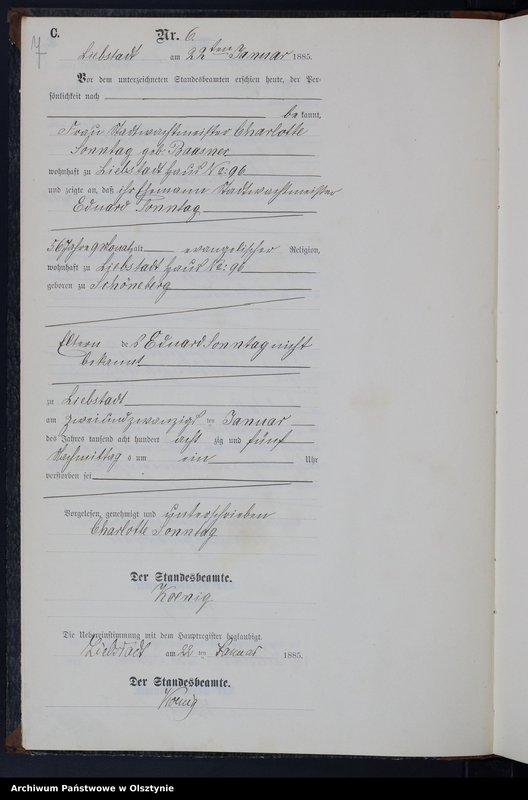 7
C.
Nr. 6
Liebstadt am 22ten Januar 1885.
Vor dem unterzeichneten Standesbeamten erschien heute, der Per-
sönlichkeit nach
be kannt,
Frau Stadtwachtmeister Charlotte
Sonntag geb. Baasner
wohnhaft zu Liebstadt Haus No: 96
und zeigte an, daß ihr Ehemann Stadtwachtmeister
Eduard Sonntag
56 Jahre 9 Monat alt evangelischer Religion,
wohnhaft zu Liebstadt Haus No: 96
geboren zu Schöneberg
Eltern des Eduard Sonntag nicht
bekannt
zu Liebstadt
am zweiundzwanzigs ten Januar
des Jahres tausend acht hundert acht zig und fünf
Nachmittag s um ein Uhr
verstorben sei
Vorgelesen, genehmigt und unterschrieben
Charlotte Sonntag
Der Standesbeamte.
Koenig
Die Uebereinstimmung mit dem Hauptregister beglaubigt.
Liebstadt am 22 ten Januar 1885.
Der Standesbeamte.
Koenig
Archiwum Państwowe w Olsztynie